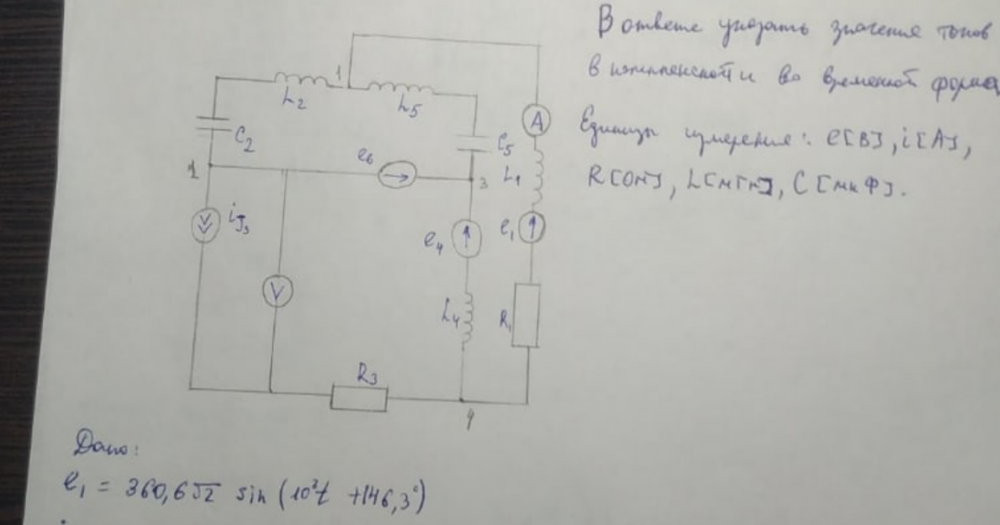 В ответе указать значения токов
в комплексной и во временной форме
Единицы измерения: e[В], i[А],
R[Ом], L[мГн], C[мкФ].
1
L2
L5
A
C2
C5
L1
e6
1
3
iJ3
e4
e1
V
L4
R1
R3
4
Дано:
e1 = 360,6√2 sin (10²t +146,3°)